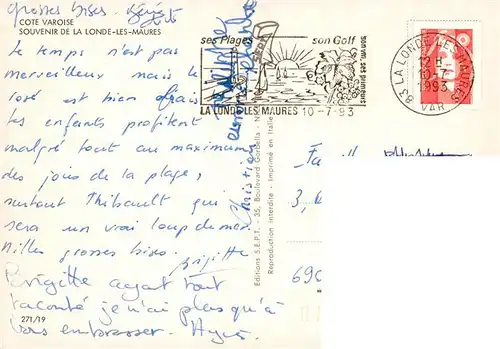 grosses bises.
COTE VAROISE
SOUVENIR DE LA LONDE-LES-MAURES
Le temps n'est pas
merveilleux mais le
rosé est bien frais
les enfants profitent
malgré tout au maximum
des joies de la plage,
surtout Thibault qui
sera un vrai loup de mer.
Milles grosses bises.
Brigitte
Brigitte ayant tout
raconté je n'ai plus qu'à
vous embrasser.
271/19
Christian
Editions S.E.P.T. - 35, Boulevard Gorbella - N
Reproduction interdite - Imprimé en Italie
ses Plages
son Golf
LA LONDE-LES MAURES 10-7-93
83 LA LONDE-LES-MAURES
12 H
10-7
1993
VAR
Fa
3,
690